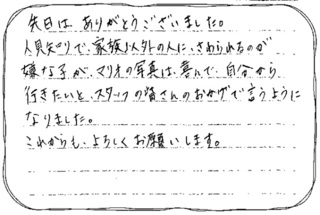 先日は、ありがとうございました。
人見知りで、家族以外の人に、さわられるのが
嫌な子が、マリオの写真は、喜んで、自分から
行きたいと、スタッフの皆さんのおかげで言うように
なりました。
これからも、よろしくお願いします。